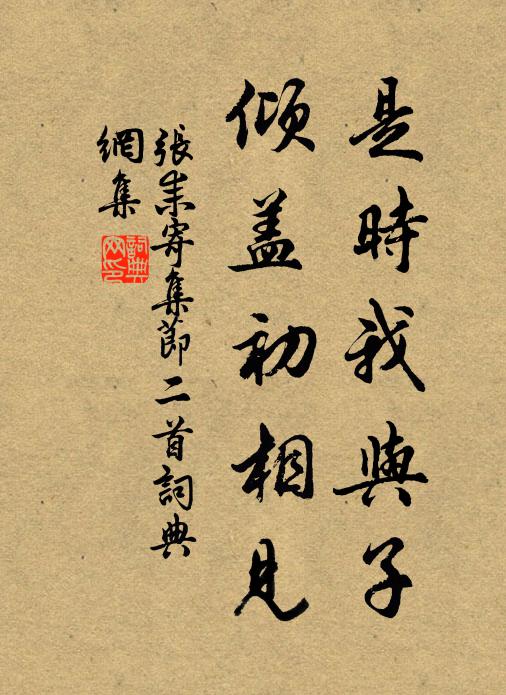 是時我與子
傾盖初相見
張耒寄集節二首詞典
網集
詞典
网印